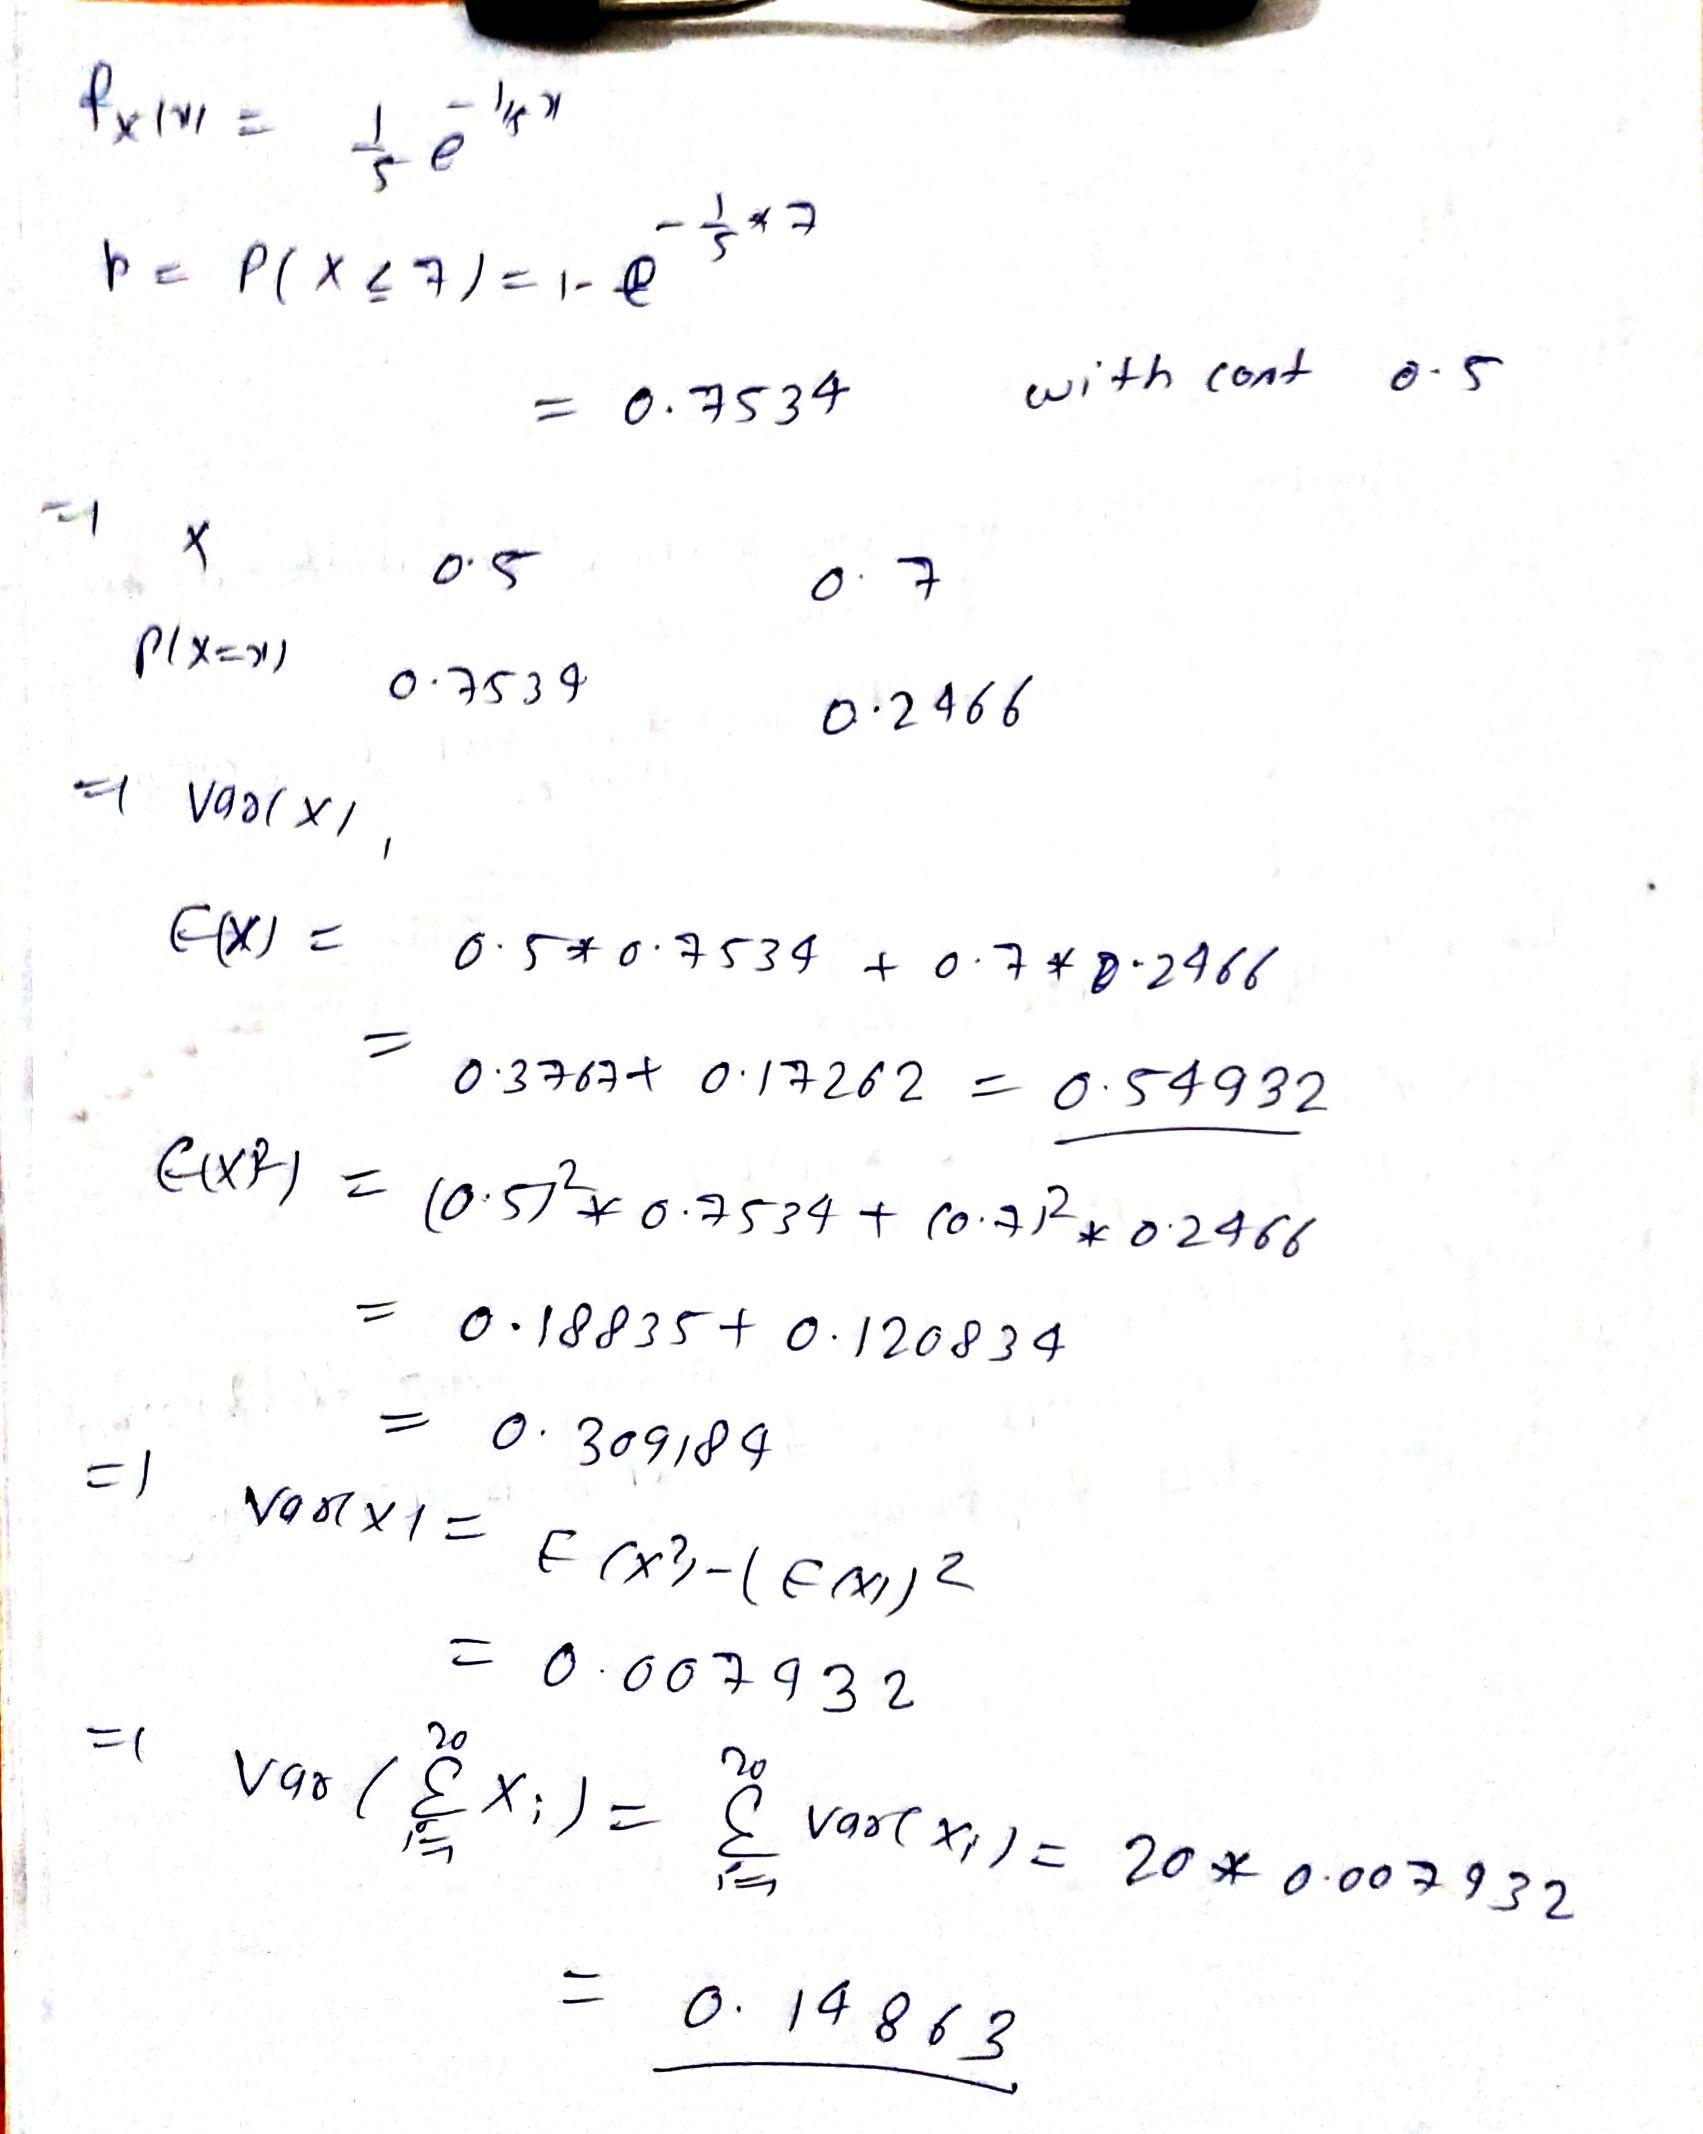 fx(x) = 1/5 e^-1/5 x
p = P(X ≤ 7) = 1- e^-1/5*7
= 0.7534 with cost 0.5
=) X 0.5 0.7
P(X=x) 0.7534 0.2466
=) Var(X),
E(X) = 0.5*0.7534 + 0.7*0.2466
= 0.3767+ 0.17262 = 0.54932
E(X²) = (0.5)²*0.7534 + (0.7)²*0.2466
= 0.18835+ 0.120834
= 0.309184
=) Var(X) = E(X²)-(E(X))²
= 0.007932
=) Var(Σ_{i=1}^{20} Xi) = Σ_{i=1}^{20} Var(Xi) = 20*0.007932
= 0.14863